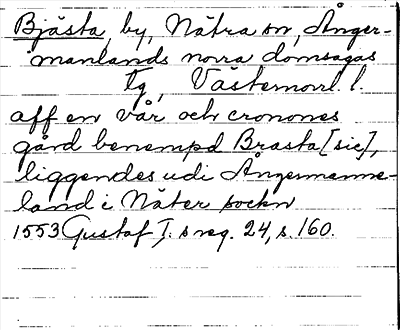 Bjästa, by, Nätra sn, Ånger-
manlands norra domsagas
tg, Västernorrl. l.
aff en vår och cronones
gård benempd Brasta [sic],
liggendes udi Ångermanne-
land i Näter sockn
1553 Gustaf I:s reg. 24, s. 160.